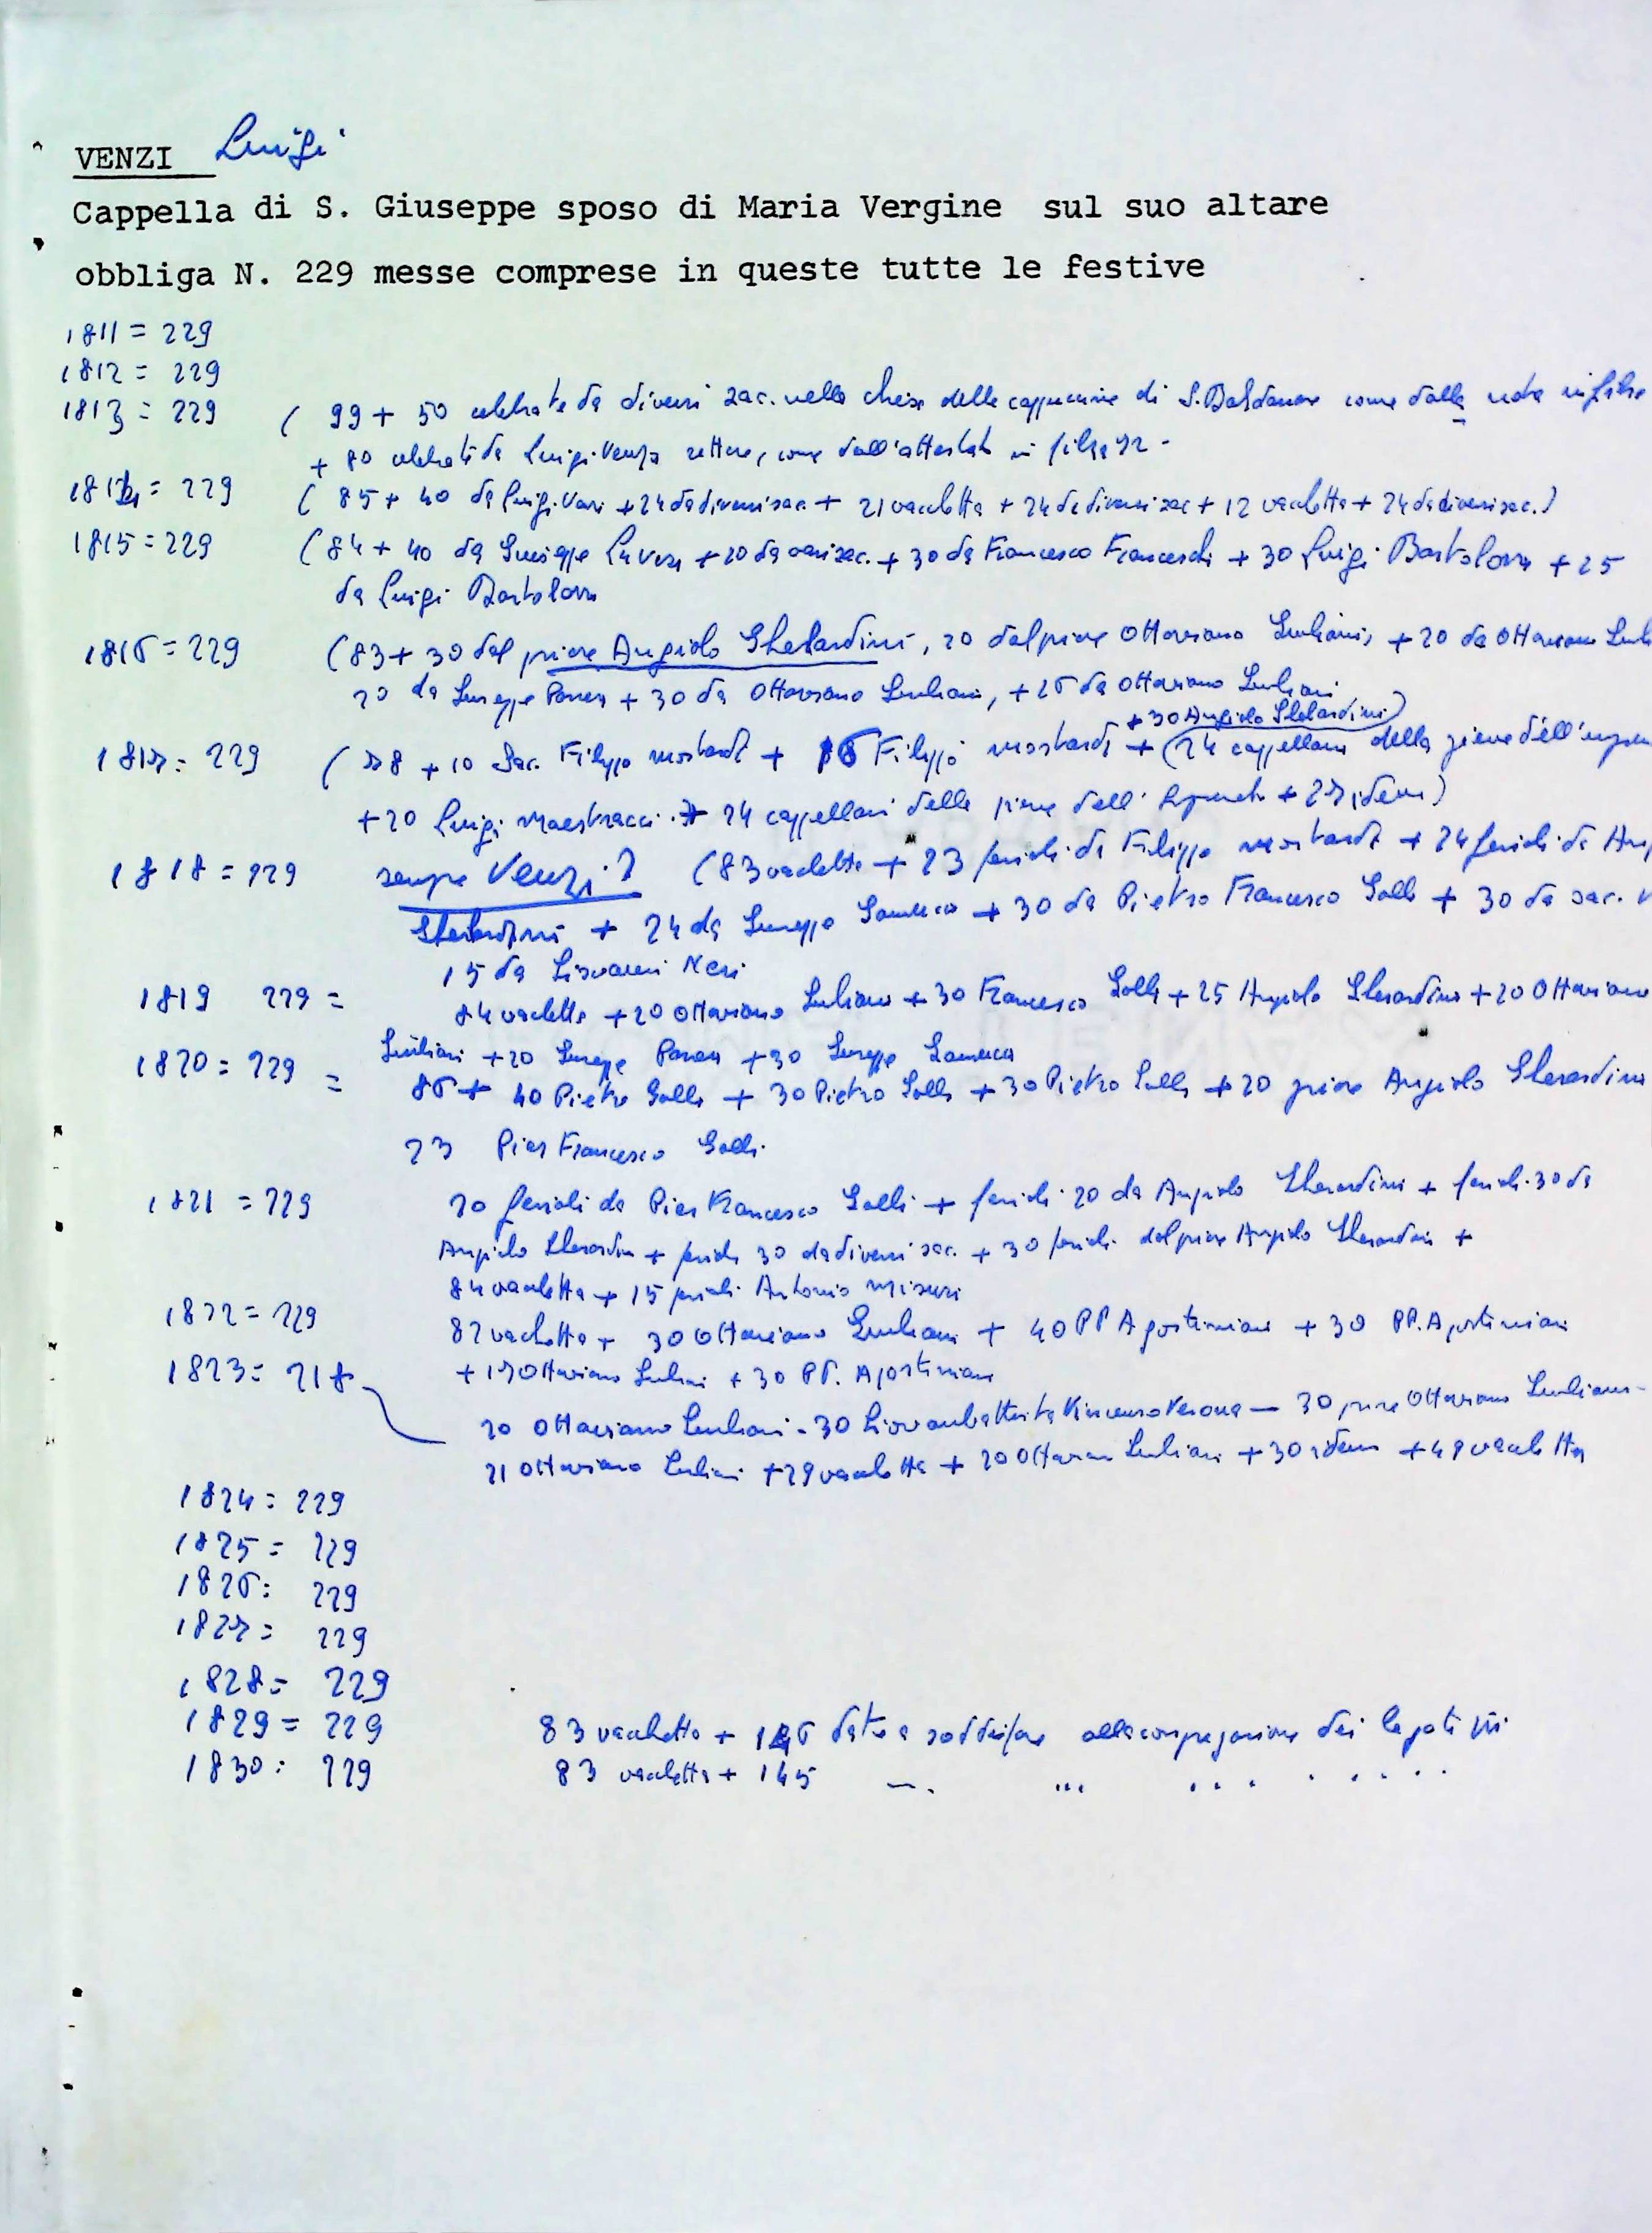 VENZI Luigi
Cappella di S. Giuseppe sposo di Maria Vergine sul suo altare
obbliga N. 229 messe comprese in queste tutte le festive
1811 = 229
1812 = 229
1813 = 229 ( 99 + 50 celebrate da diversi sac. nella chiesa delle cappuccine di S. come dalla nota in filza
+ 80 celebrate da Luigi Venzi rettore, come dall'attestato in filza
1814 = 229 ( 85 + 40 da Luigi + 24 da diversi sac. + 21 vacchetta + 24 da diversi sac + 12 vacchetta + 24 da diversi sac. )
1815 = 229 ( 84 + 40 da Giuseppe + 20 da vari sac. + 30 da Francesco Franceschi + 30 Luigi + 25
da Luigi
1816 = 229 ( 83 + 30 dal priore Angiolo Gherardini, 20 dal priore Ottaviano Giuliani, + 20 da Ottaviano
20 da Giuseppe + 30 da Ottaviano Giuliani, + 26 da Ottaviano Giuliani
+ 30 Angiolo Gherardini )
1817 = 229 ( 78 + 10 Sac. Filippo + 16 Filippo + ( 24 cappellani della pieve dell'
+ 20 Luigi Maestracci + 24 cappellani della pieve dell' + 27 idem )
1818 = 229 sempre Venzi ? ( 83 vacchetta + 23 feriali di Filippo + 24 feriali di
Gherardini + 24 da Giuseppe + 30 da Pietro Francesco Galli + 30 da sac.
15 da Giovanni Neri
1819 229 = 84 vacchetta + 20 Ottaviano Giuliani + 30 Francesco Galli + 25 Angiolo Gherardini + 20 Ottaviano
Giuliani + 20 Giuseppe + 30 Giuseppe
1820 = 229 = 86 + 40 Pietro Galli + 30 Pietro Galli + 30 Pietro Galli + 20 priore Angiolo Gherardini
23 Pier Francesco Galli.
1821 = 229 20 feriali da Pier Francesco Galli + feriali 20 da Angiolo Gherardini + feriali 30 da
Angiolo Gherardini + feriali 30 da diversi sac. + 30 feriali dal priore Angiolo Gherardini +
84 vacchetta + 15 feriali Antonio Misuri
1822 = 229 82 vacchetta + 30 Ottaviano Giuliani + 40 PP Agostiniani + 30 PP. Agostiniani
+ Ottaviano Giuliani + 30 PP. Agostiniani
1823 = 218 20 Ottaviano Giuliani - 30 Giovanbattista Vincenzo Verona — 30 priore Ottaviano Giuliani -
21 Ottaviano Giuliani + 29 vacchetta + 20 Ottaviano Giuliani + 30 idem + 48 vacchetta
1824 = 229
1825 = 229
1826 = 229
1827 = 229
1828 = 229
1829 = 229 83 vacchetta + 146 date a soddisfare alla congregazione dei legati pii
1830 = 229 83 vacchetta + 145 — . ... . . . . . . . .